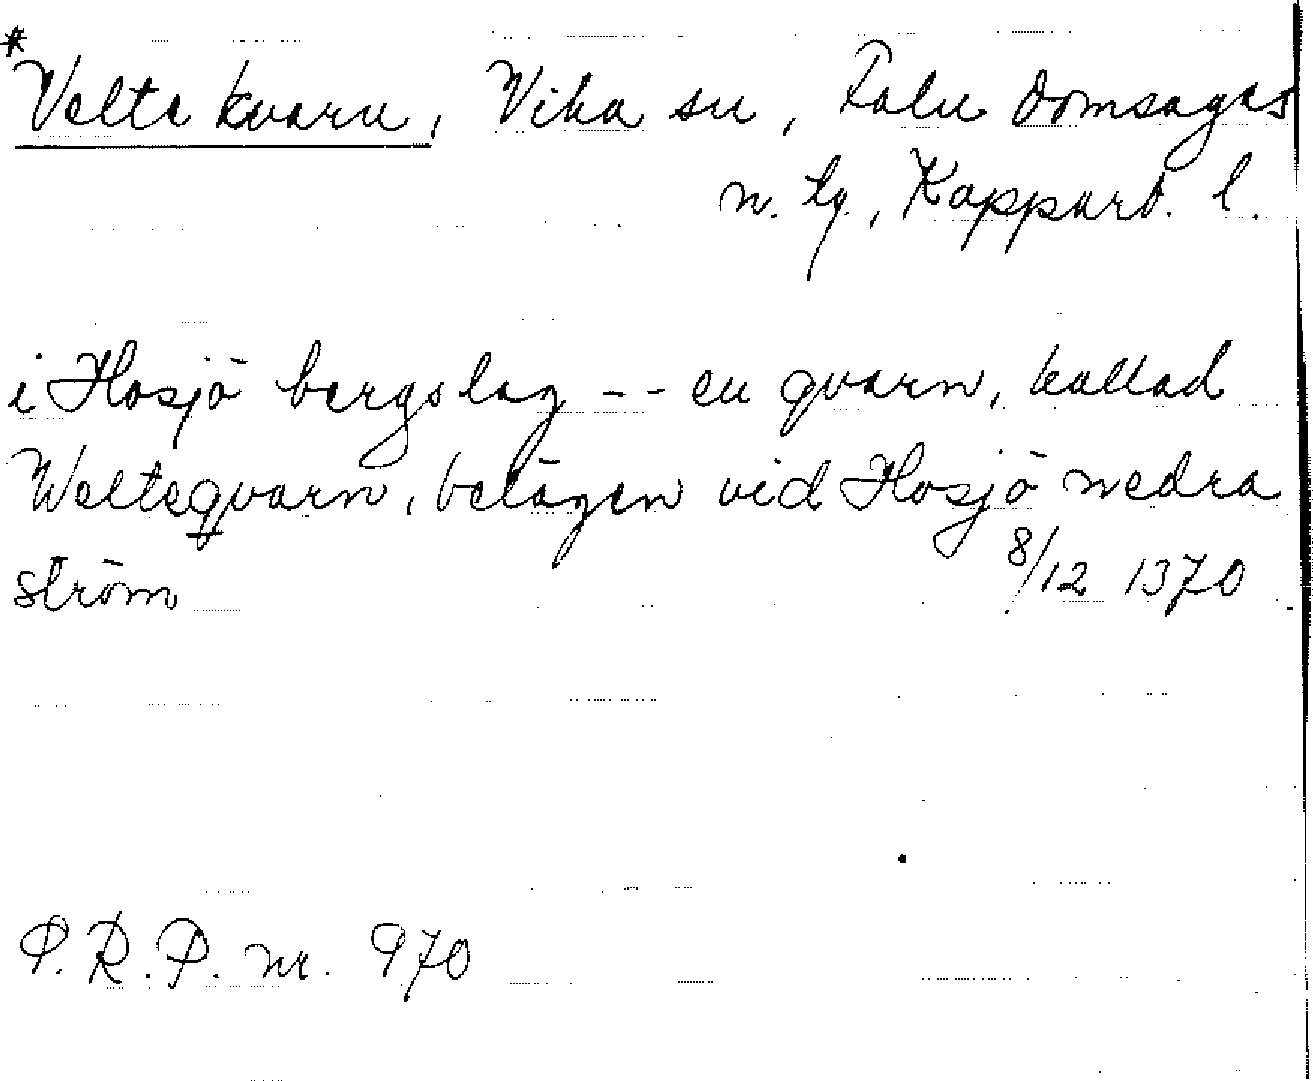 *Velte kvarn, Vika sn, Falu domsagas
n. tg., Kopparb. l.
i Hosjö bergslag -- en qvarn, kallad
Welteqvarn, belägen vid Hosjö nedra
ström 8/12 1370
P.R.P. nr. 970